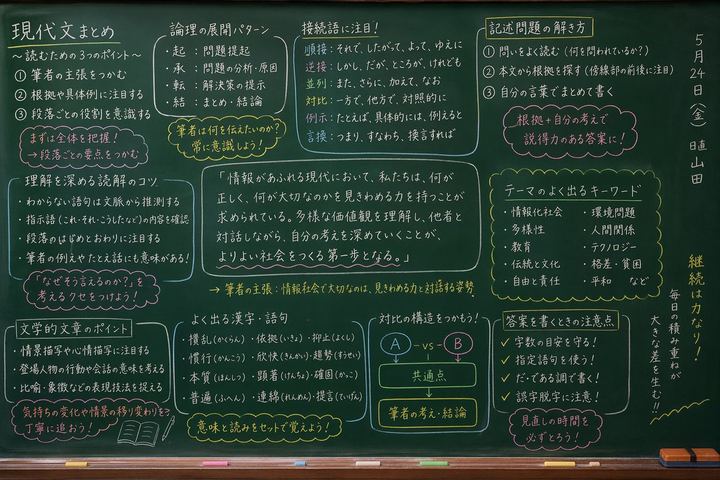 現代文まとめ
～読むための3つのポイント～
① 筆者の主張をつかむ
② 根拠や具体例に注目する
③ 段落ごとの役割を意識する
まずは全体を把握！
→段落ごとの要点をつかむ
論理の展開パターン
・起：問題提起
・承：問題の分析・原因
・転：解決策の提示
・結：まとめ・結論
筆者は何を伝えたいのか？
常に意識しよう！
接続語に注目！
順接：それで、したがって、よって、ゆえに
逆接：しかし、だが、ところが、けれども
並列：また、さらに、加えて、なお
対比：一方で、他方で、対照的に
例示：たとえば、具体的には、例えると
言換：つまり、すなわち、換言すれば
記述問題の解き方
① 問いをよく読む（何を問われているか？）
② 本文から根拠を探す（傍線部の前後に注目）
③ 自分の言葉でまとめて書く
根拠＋自分の考えで
説得力のある答案に！
5月24日（金）
日直 山田
理解を深める読解のコツ
・わからない語句は文脈から推測する
・指示語（これ・それ・こうしたなど）の内容を確認
・段落のはじめとおわりに注目する
・筆者の例えやたとえ話にも意味がある！
「なぜそう言えるのか？」を
考えるクセをつけよう！
「情報があふれる現代において、私たちは、何が
正しく、何が大切なのかを見きわめる力を持つことが
求められている。多様な価値観を理解し、他者と
対話しながら、自分の考えを深めていくことが、
よりよい社会をつくる第一歩となる。」
→ 筆者の主張：情報社会で大切なのは、見きわめる力と対話する姿勢
テーマのよく出るキーワード
・情報化社会
・多様性
・教育
・伝統と文化
・自由と責任
・環境問題
・人間関係
・テクノロジー
・格差・貧困
・平和 など
継続は力なり！
毎日の積み重ねが
大きな差を生む!!
文学的文章のポイント
・情景描写や心情描写に注目する
・登場人物の行動や会話の意味を考える
・比喩・象徴などの表現技法を捉える
気持ちの変化や情景の移り変わりを
丁寧に追おう！
よく出る漢字・語句
・慣乱（かくらん）・依拠（いきょ）・抑止（よくし）
・慣行（かんこう）・欣快（きんかい）・趨勢（すうせい）
・本質（ほんしつ）・顕著（けんちょ）・確固（かっこ）
・普遍（ふへん）・連綿（れんめん）・提言（ていげん）
意味と読みをセットで覚えよう！
対比の構造をつかもう！
A -vs- B
共通点
筆者の考え・結論
答案を書くときの注意点
✓ 字数の目安を守る！
✓ 指定語句を使う！
✓ だ・である調で書く！
✓ 誤字脱字に注意！
見直しの時間を
必ずとろう！